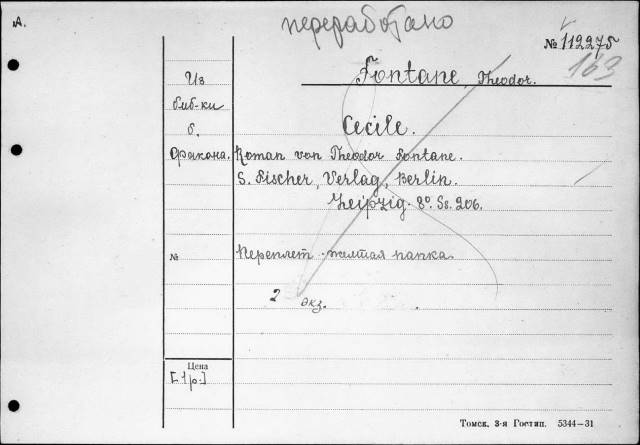 А.
переработано
№ 112275
163
Fontane, Theodor.
Из
биб-ки
б.
Фракона.
Cecile.
Roman von Theodor Fontane.
S. Fischer, Verlag, Berlin.
Leipzig. 8º. Ss. 206.
№
Переплет - желтая папка
2 экз.
Цена
[1 р.]
Томск, 3-я Гостип. 5344—31